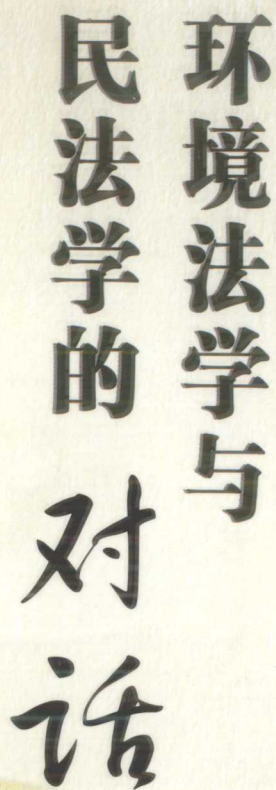 环境法学与
民法学的对话